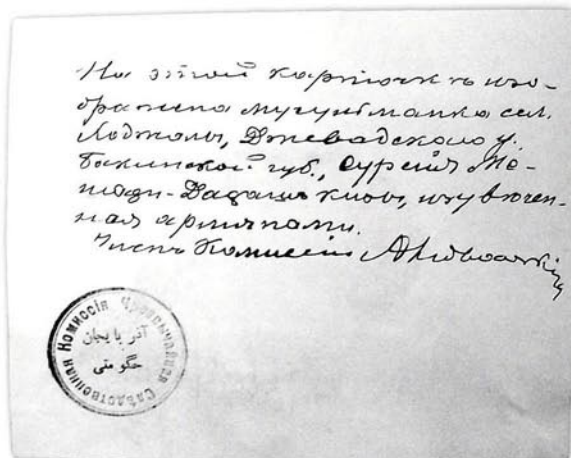 На этой карточкѣ изо-
бражена мусульманка сел.
Ходжалы, Джевадскаго у.
Бакинской губ., Сурейя Ме-
шади-Дадашъ кизы, изувечен-
ная армянами.
Членъ Комиссіи
Чрезвычайная Слѣдственная Комиссія
آذربایجان
حکومتی